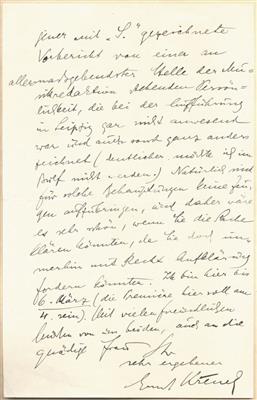 jener mit „S." gezeichnete
Vorbericht von einer an
allermassgebendster Stelle der Mu-
sikredaktion stehenden Persön-
lichkeit, die bei der Aufführung
in Leipzig gar nicht anwesend
war und auch sonst ganz anders
zeichnet (deutlicher möchte ich im
nicht werden). Natürlich sind
für solche Behauptungen keine Zeu-
gen aufzubringen, und daher wäre
es sehr schön, wenn Sie die Sache
klären könnten, da Sie doch im-
merhin mit Recht Aufklärung
fordern könnten. Ich bin hier bis
6. März (die Première hier soll am
4. sein). Mit vielen freundlichen
von uns beiden, auch an die
gnädige Frau
Ihr
sehr ergebener
Ernst Krenek